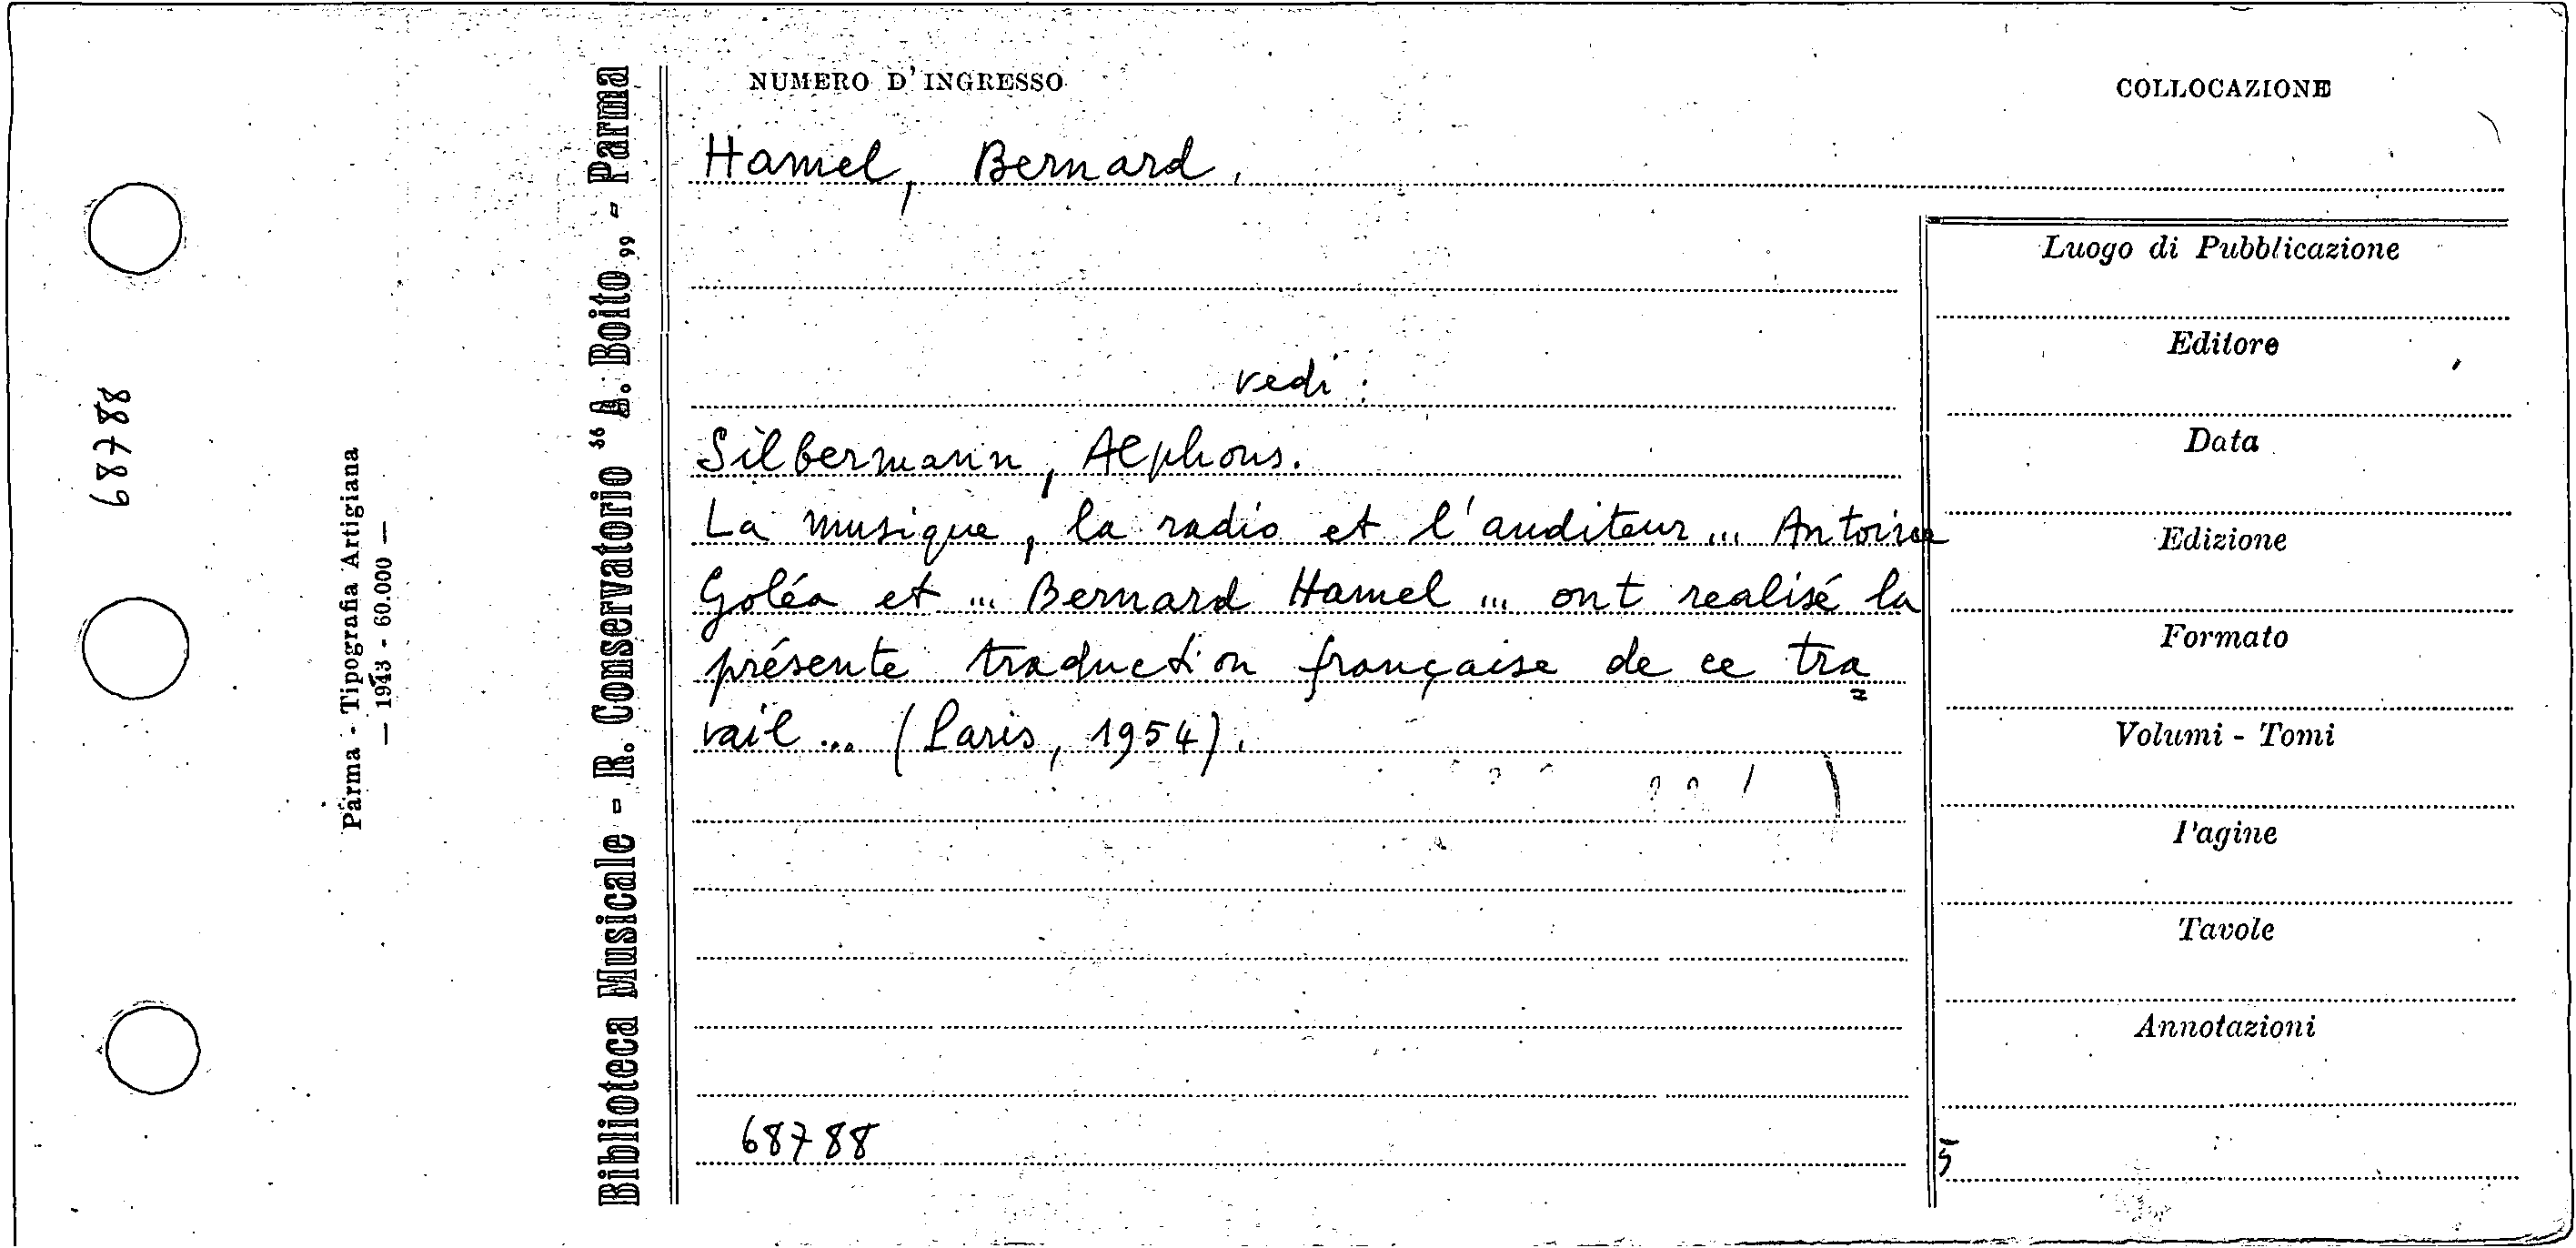 NUMERO D'INGRESSO
COLLOCAZIONE
Hamel, Bernard.
vedi:
Silbermann, Alphons.
La musique, la radio et l'auditeur ... Antoine
Goléa et ... Bernard Hamel ... ont realisé la
présente traduction française de ce tra=
vail ... (Paris, 1954).
68788
Luogo di Pubblicazione
Editore
Data
Edizione
Formato
Volumi - Tomi
Pagine
Tavole
Annotazioni
Biblioteca Musicale - R. Conservatorio “A. Boito„ - Parma
Parma - Tipografia Artigiana
— 1943 - 60.000 —
68788